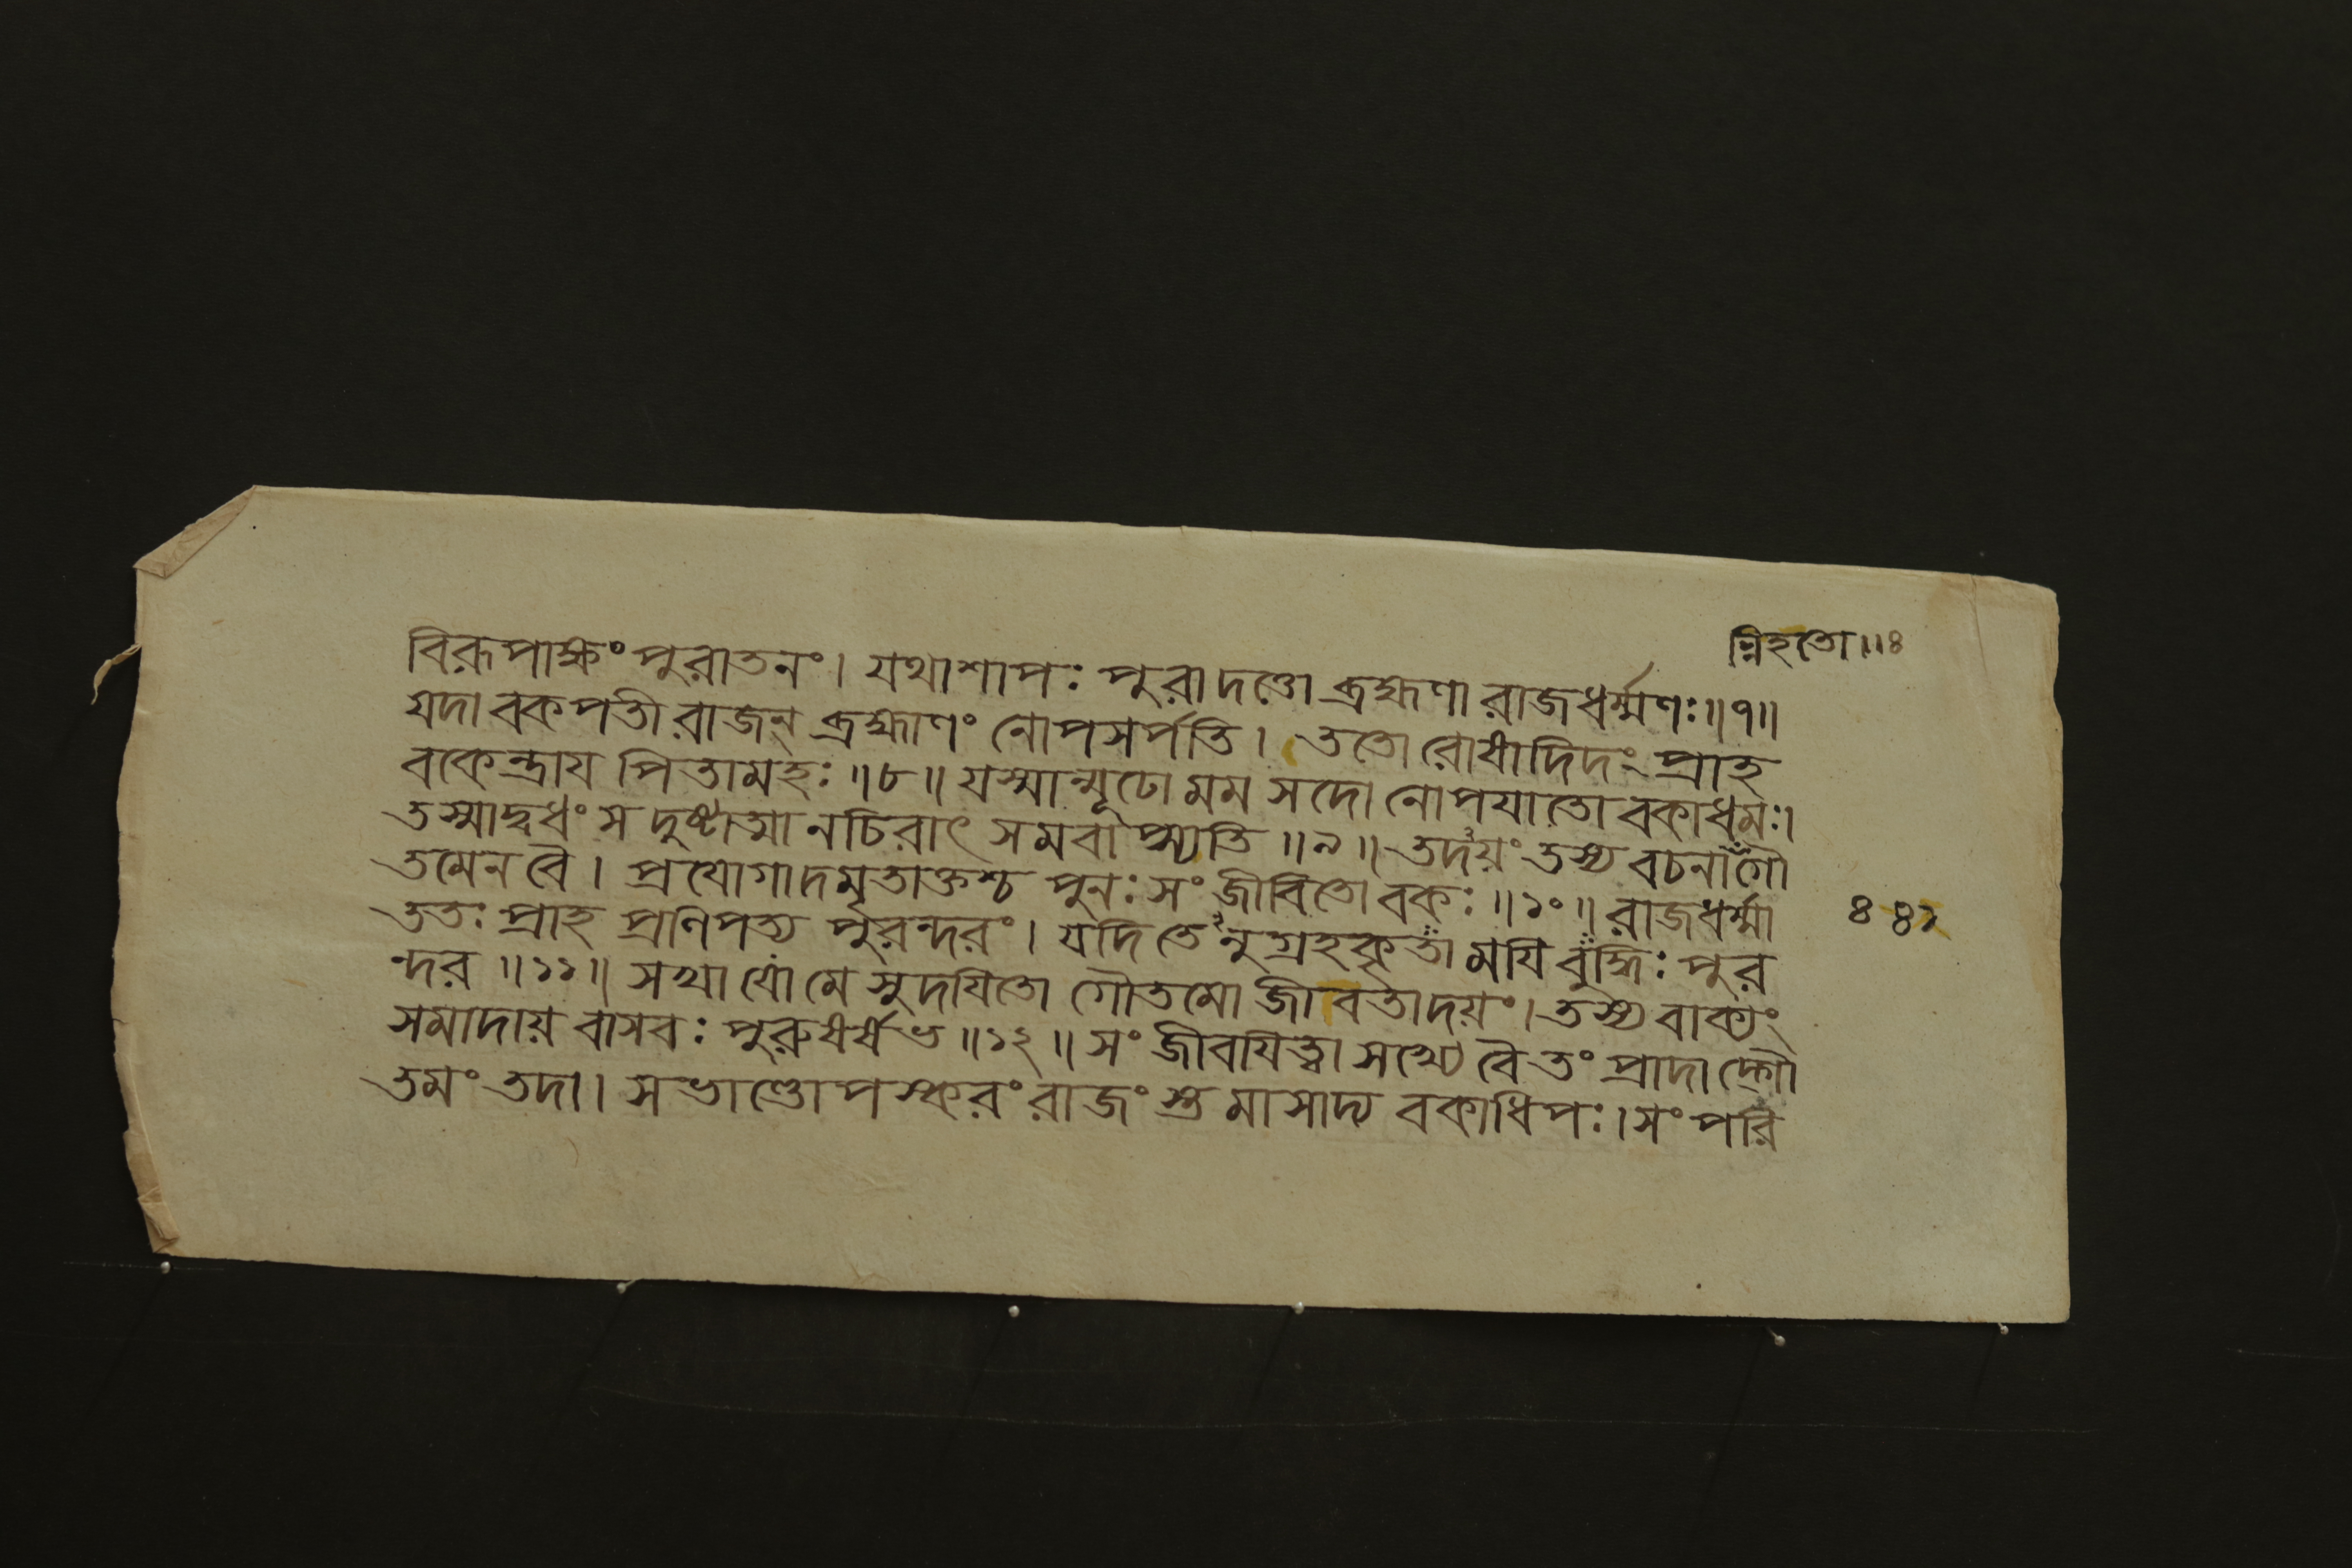 ন্নিহতো॥৪
বিরূপাক্ষং পুরাতনং। যথাশাপঃ পুরাদত্তো ব্রহ্মণা রাজধর্ম্মণঃ॥৭॥
যদা বকপতী রাজন্ ব্রহ্মাণং নোপসর্পতি। ততো রোষাদিদং প্রাহ
বকেন্দ্রায পিতামহঃ॥৮॥ যস্মান্মূঢো মম সদো নোপযাতো বকাধমঃ।
তস্মাদ্বধং স দুষ্টাত্মা নচিরাৎ সমবাপ্স্যতি॥৯॥ তদয়ং তস্য বচনান্নিহতো গৌ
তমেন বৈ। প্রযোগাদমৃতাক্তশ্চ পুনঃ সংজীবিতো বকঃ॥১০॥ রাজধর্ম্মা
ততঃ প্রাহ প্রণিপত্য পুরন্দরং। যদি তেনুগ্রহকৃতা মযি বুদ্ধিঃ পুর
ন্দর॥১১॥ সখাযো মে সুদযিতো গৌতমো জীবতাদয়ং। তস্য বাক্যং
সমাদায় বাসবঃ পুরুষর্ষভ॥১২॥ সংজীবযিত্বা সখ্যে বৈ তং প্রাদাদ্গৌ
তমং তদা। সভাণ্ডোপস্করং রাজংস্তমাসাদ্য বকাধিপঃ। সংপরি
৪৪১